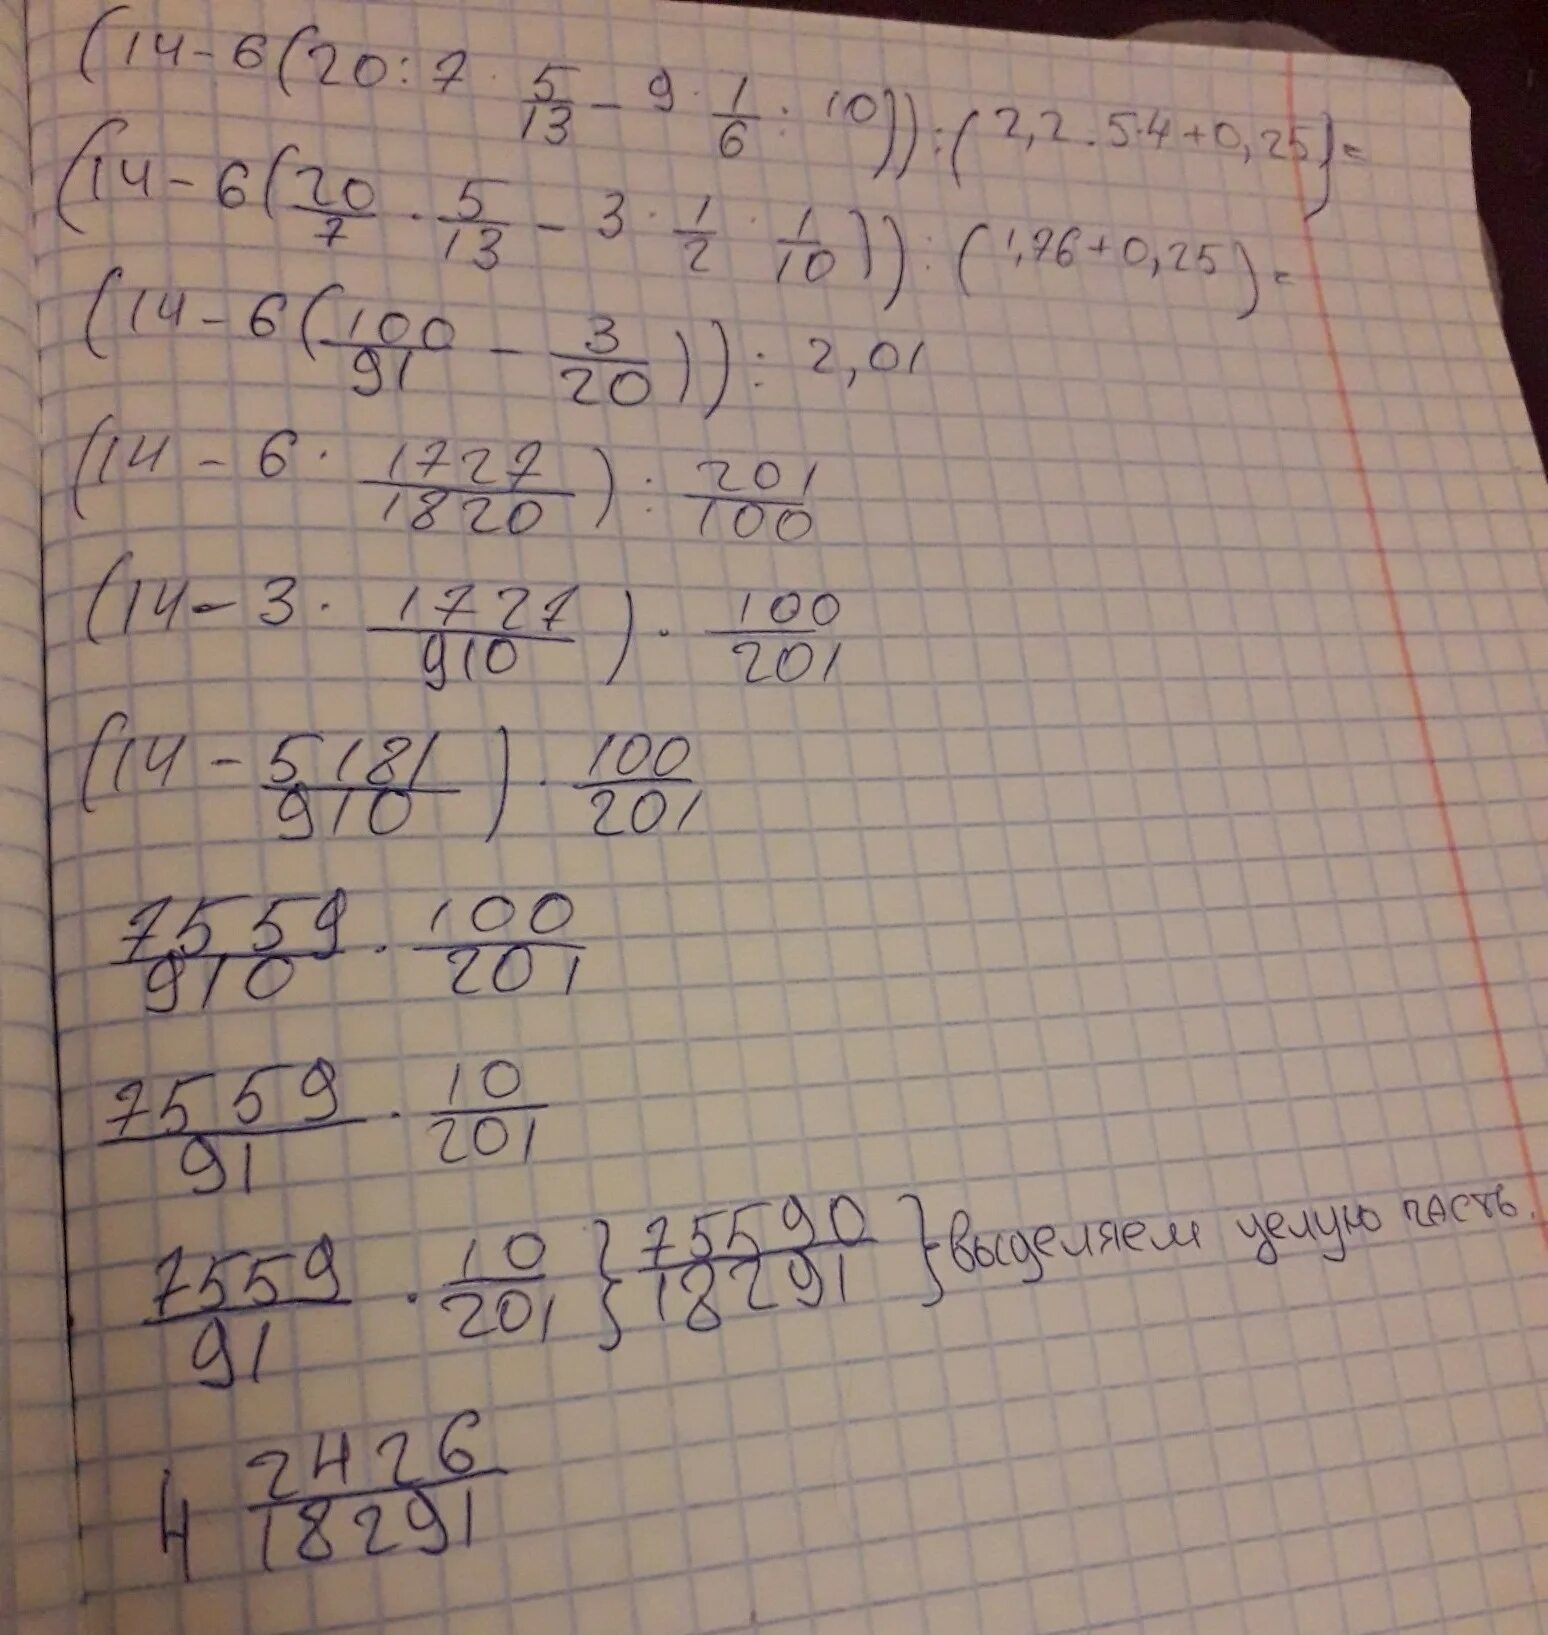 (14-6(20:7·5/13-9·1/6:10)):(2,2:5·4+0,25)=
(14-6(20/7·5/13-3·1/2·1/10)):(1,76+0,25)=
(14-6(100/91-3/20)):2,01
(14-6·1727/1820):201/100
(14-3·1727/910)·100/201
(14-5181/910)·100/201
7559/910·100/201
7559/91·10/201
7559/91·10/201}75590/18291}выделяем целую часть.
4 2426/18291